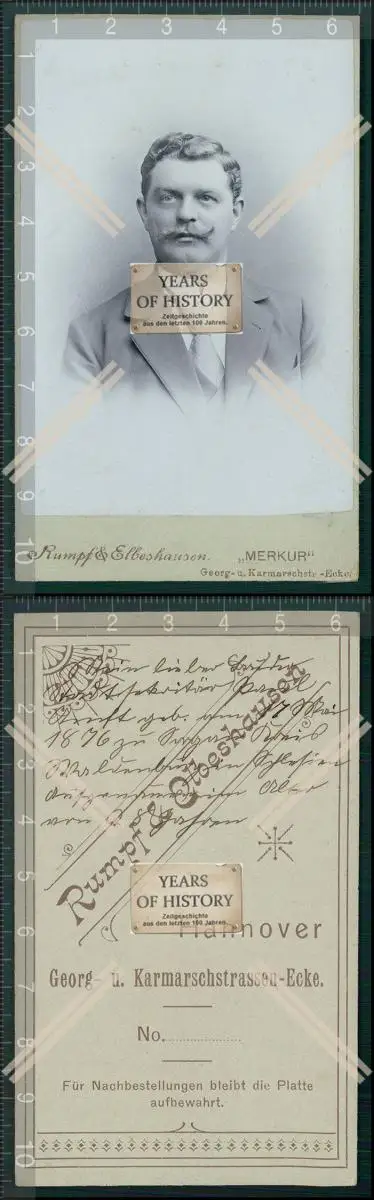 1 2 3 4 5 6
2
3
4
5
6
7
8
9
10
YEARS
OF HISTORY
Zeitgeschichte
aus den letzten 100 Jahren.
Rumpf & Elbeshausen. „MERKUR“
Georg- u. Karmarschstr.-Ecke.
1 2 3 4 5 6
2
3
4
5
6
7
8
9
10
Mein lieber Bruder
Postsekretär Paul
geb. am 7 Mai
1876 zu Kreis
Waldenburg in Schlesien
Aufgenommen im Alter
von 28 Jahren
Rumpf & Elbeshausen
YEARS
OF HISTORY
Zeitgeschichte
aus den letzten 100 Jahren.
Hannover
Georg- u. Karmarschstrassen-Ecke.
No.
Für Nachbestellungen bleibt die Platte
aufbewahrt.